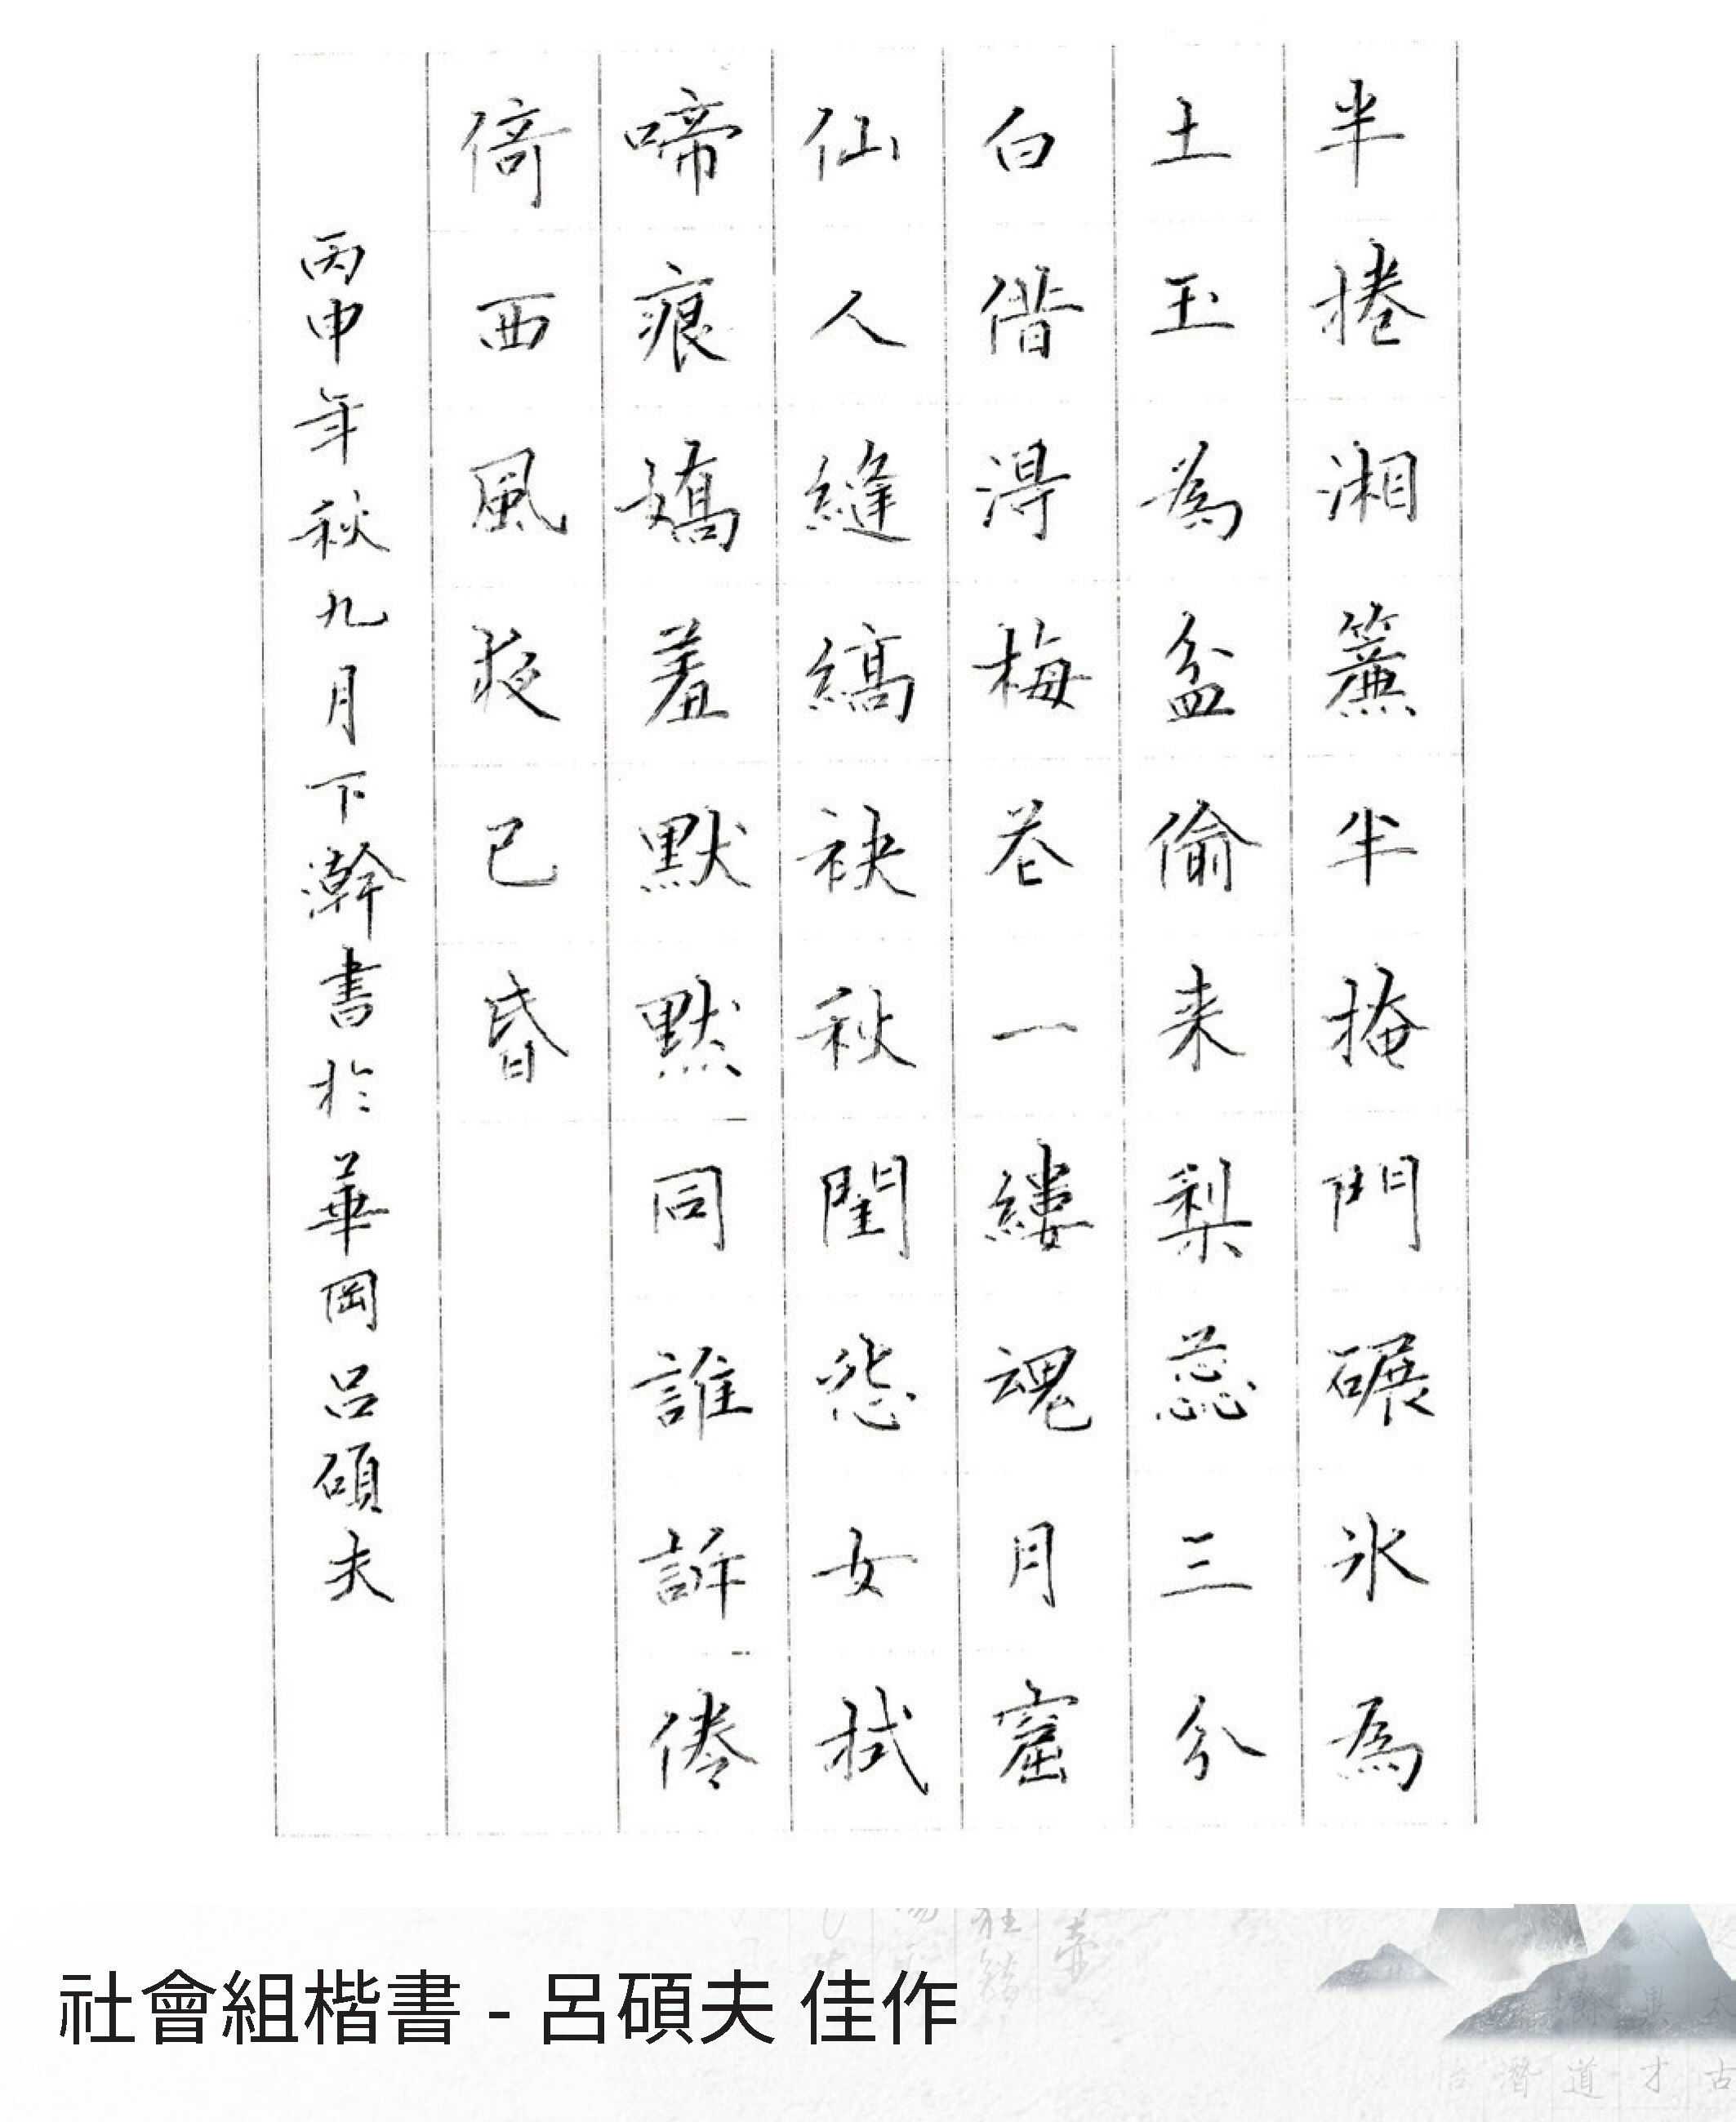 半捲湘簾半掩門碾氷為
土玉為盆偷来梨蕊三分
白借得梅花一縷魂月窟
仙人縫縞袂秋閨怨女拭
啼痕嬌羞默默同誰訴倦
倚西風夜已昏
丙申年秋九月下瀚書於華岡呂碩夫
社會組楷書 - 呂碩夫 佳作